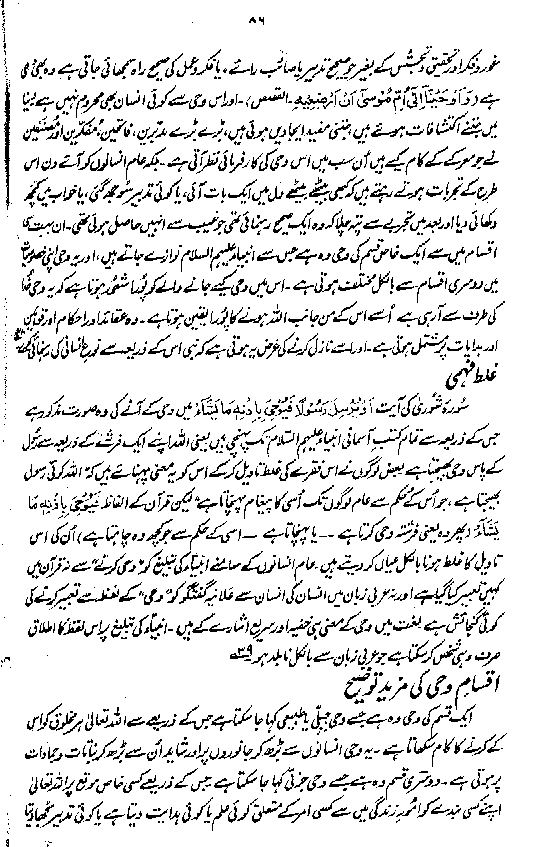 ۸۶
غور و فکر اور تحقیق و تجسّس کے بغیر جو صحیح تدبیر یا صائب رائے، یا فکر و عمل کی صحیح راہ سمجھائی جاتی ہے وہ بھی وحی
ہے (وَاَوْحَیْنَآ اِلٰٓی اُمِّ مُوْسٰٓی اَنْ اَرْضِعِیْہِ۔ القصص)۔ اور اس وحی سے کوئی انسان بھی محروم نہیں ہے۔ دُنیا
میں جتنے اکتشافات ہوئے ہیں، جتنی مفید ایجادیں ہوئی ہیں، بڑے بڑے مدبّرین، فاتحین، مفکّرین اور مصنّفین
نے جو معرکے کے کام کیے ہیں اُن سب میں اس وحی کی کارفرمائی نظر آتی ہے۔ بلکہ عام انسانوں کو آئے دن اس
طرح کے تجربات ہوتے رہتے ہیں کہ کبھی بیٹھے بیٹھے دل میں ایک بات آئی، یا کوئی تدبیر سوجھ گئی، یا خواب میں کچھ
دکھائی دیا اور بعد میں تجربے سے پتہ چلا کہ وہ ایک صحیح رہنمائی تھی جو غیب سے انہیں حاصل ہوئی تھی۔ ان بہت سی
اقسام میں سے ایک خاص قسم کی وحی وہ ہے جس سے انبیاء علیہم السلام نوازے جاتے ہیں، اور یہ وحی اپنی خصوصیات
میں دوسری اقسام سے بالکل مختلف ہوتی ہے۔ اس میں وحی کیے جانے والے کو پُورا شعور ہوتا ہے کہ یہ وحی خدا
کی طرف سے آ رہی ہے۔ اُسے اس کے من جانب اللہ ہونے کا پورا یقین ہوتا ہے۔ وہ عقائد اور احکام اور قوانین
اور ہدایات پر مشتمل ہوتی ہے۔ اور اسے نازل کرنے کی غرض یہ ہوتی ہے کہ نبی اس کے ذریعہ سے نوعِ انسانی کی رہنمائی کرے۔
غلط فہمی
سورۂ شُوریٰ کی آیت اَوْ یُرْسِلَ رَسُوْلًا فَیُوْحِیَ بِاِذْنِہٖ مَا یَشَآءُ میں وحی کے آنے کی وہ صورت مذکور ہے
جس کے ذریعہ سے تمام کتبِ آسمانی انبیاء علیہم السلام تک پہنچی ہیں یعنی اللہ اپنے ایک فرشتے کے ذریعہ سے رسُول
کے پاس وحی بھیجتا ہے بعض لوگوں نے اس فقرے کی غلط تاویل کر کے اس کو یہ معنی پہنائے ہیں کہ "اللہ کوئی رسول
بھیجتا ہے، جو اُس کے حُکم سے عام لوگوں تک اُسی کا پیغام پہنچاتا ہے" لیکن قرآن کے الفاظ فَیُوْحِیَ بِاِذْنِہٖ مَا
یَشَآءُ (پھر وہ یعنی فرشتہ وحی کرتا ہے — یا پہنچاتا ہے — اسی کے حکم سے جو کچھ وہ چاہتا ہے) اُن کی اس
تاویل کا غلط ہونا بالکل عیاں کر دیتے ہیں۔ عام انسانوں کے سامنے انبیاء کی تبلیغ کو "وحی کرنے" سے نہ قرآن میں
کہیں تعبیر کیا گیا ہے اور نہ عربی زبان میں انسان کی انسان سے علانیہ گفتگو کو "وحی" کے لفظ سے تعبیر کرنے کی
کوئی گنجائش ہے۔ لغت میں وحی کے معنی ہی خفیہ اور سریع اشارے کے ہیں۔ انبیاء کی تبلیغ پر اس لفظ کا اطلاق
صرف وہی شخص کر سکتا ہے جو عربی زبان سے بالکل نابلد ہو۔ ۳۹
اقسامِ وحی کی مزید توضیح
ایک قسم کی وحی وہ ہے جسے وحیِ جبلّی یا طبیعی کہا جا سکتا ہے جس کے ذریعے سے اللہ تعالیٰ ہر مخلوق کو اس
کے کرنے کا کام سکھاتا ہے۔ یہ وحی انسانوں سے بڑھ کر جانوروں پر اور شاید اُن سے بڑھ کر نباتات و جمادات
پر ہوتی ہے۔ دوسری قسم وہ ہے جسے وحیِ جزئی کہا جا سکتا ہے جس کے ذریعے کسی خاص موقع پر اللہ تعالیٰ
اپنے کسی بندے کو امورِ زندگی میں سے کسی امر کے متعلق کوئی علم یا کوئی ہدایت دیتا ہے یا کوئی تدبیر سُجھا دیتا